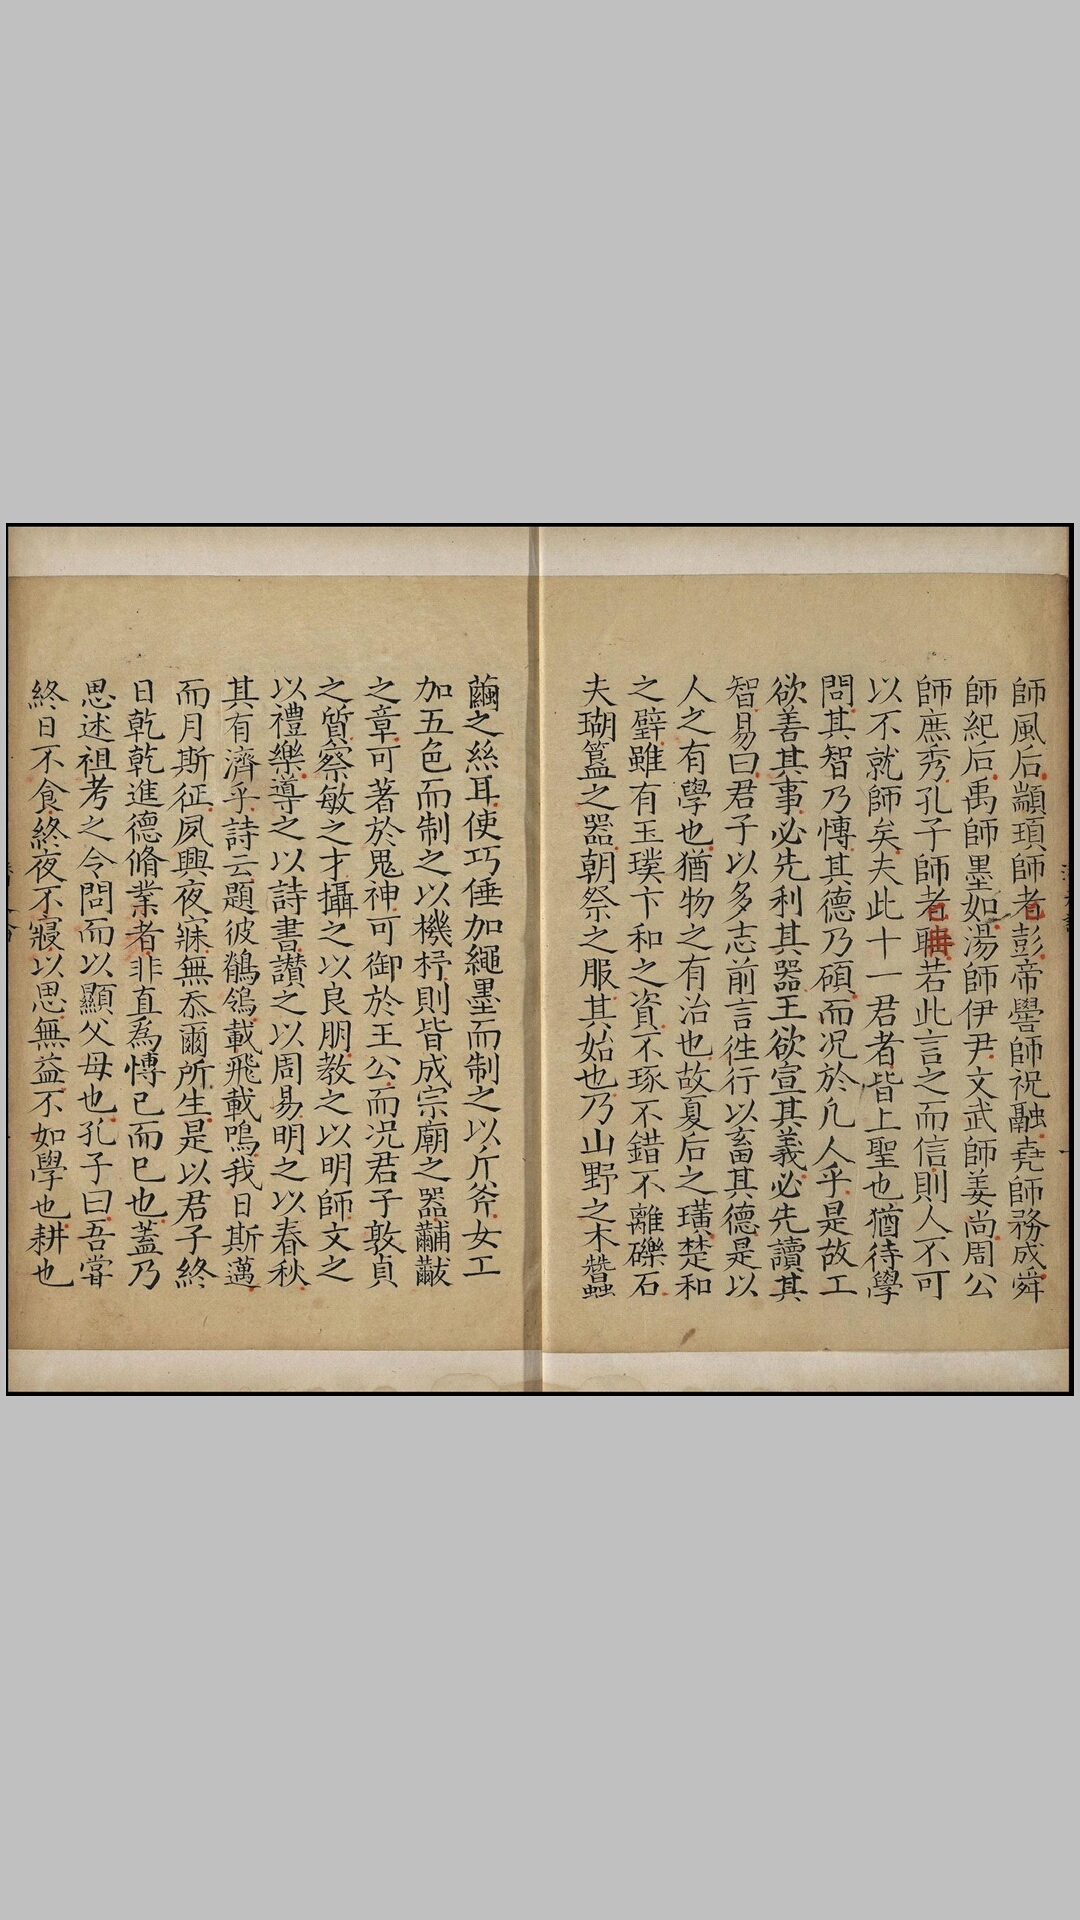 師風后顓頊師老彭帝嚳師祝融堯師務成舜
師紀后禹師墨如湯師伊尹文武師姜尚周公
師庶秀孔子師老聃若此言之而信則人不可
以不就師矣夫此十一君者皆上聖也猶待學
問其智乃愽其德乃碩而况於凢人乎是故工
欲善其事必先利其器王欲宣其義必先讀其
智易曰君子以多志前言徃行以畜其德是以
人之有學也猶物之有治也故夏后之璜楚和
之璧雖有玉璞卞和之資不琢不錯不離礫石
夫瑚簋之器朝祭之服其始也乃山野之木蠶
繭之絲耳使巧倕加繩墨而制之以斤斧女工
加五色而制之以機杼則皆成宗廟之器黼黻
之章可著於鬼神可御於王公而况君子敦貞
之質察敏之才攝之以良朋教之以明師文之
以禮樂導之以詩書讃之以周易明之以春秋
其有濟乎詩云題彼鶺鴒載飛載鳴我日斯邁
而月斯征夙興夜寐無忝爾所生是以君子終
日乾乾進德脩業者非直爲愽已而已也蓋乃
思述祖考之令問而以顯父母也孔子曰吾甞
終日不食終夜不寢以思無益不如學也耕也